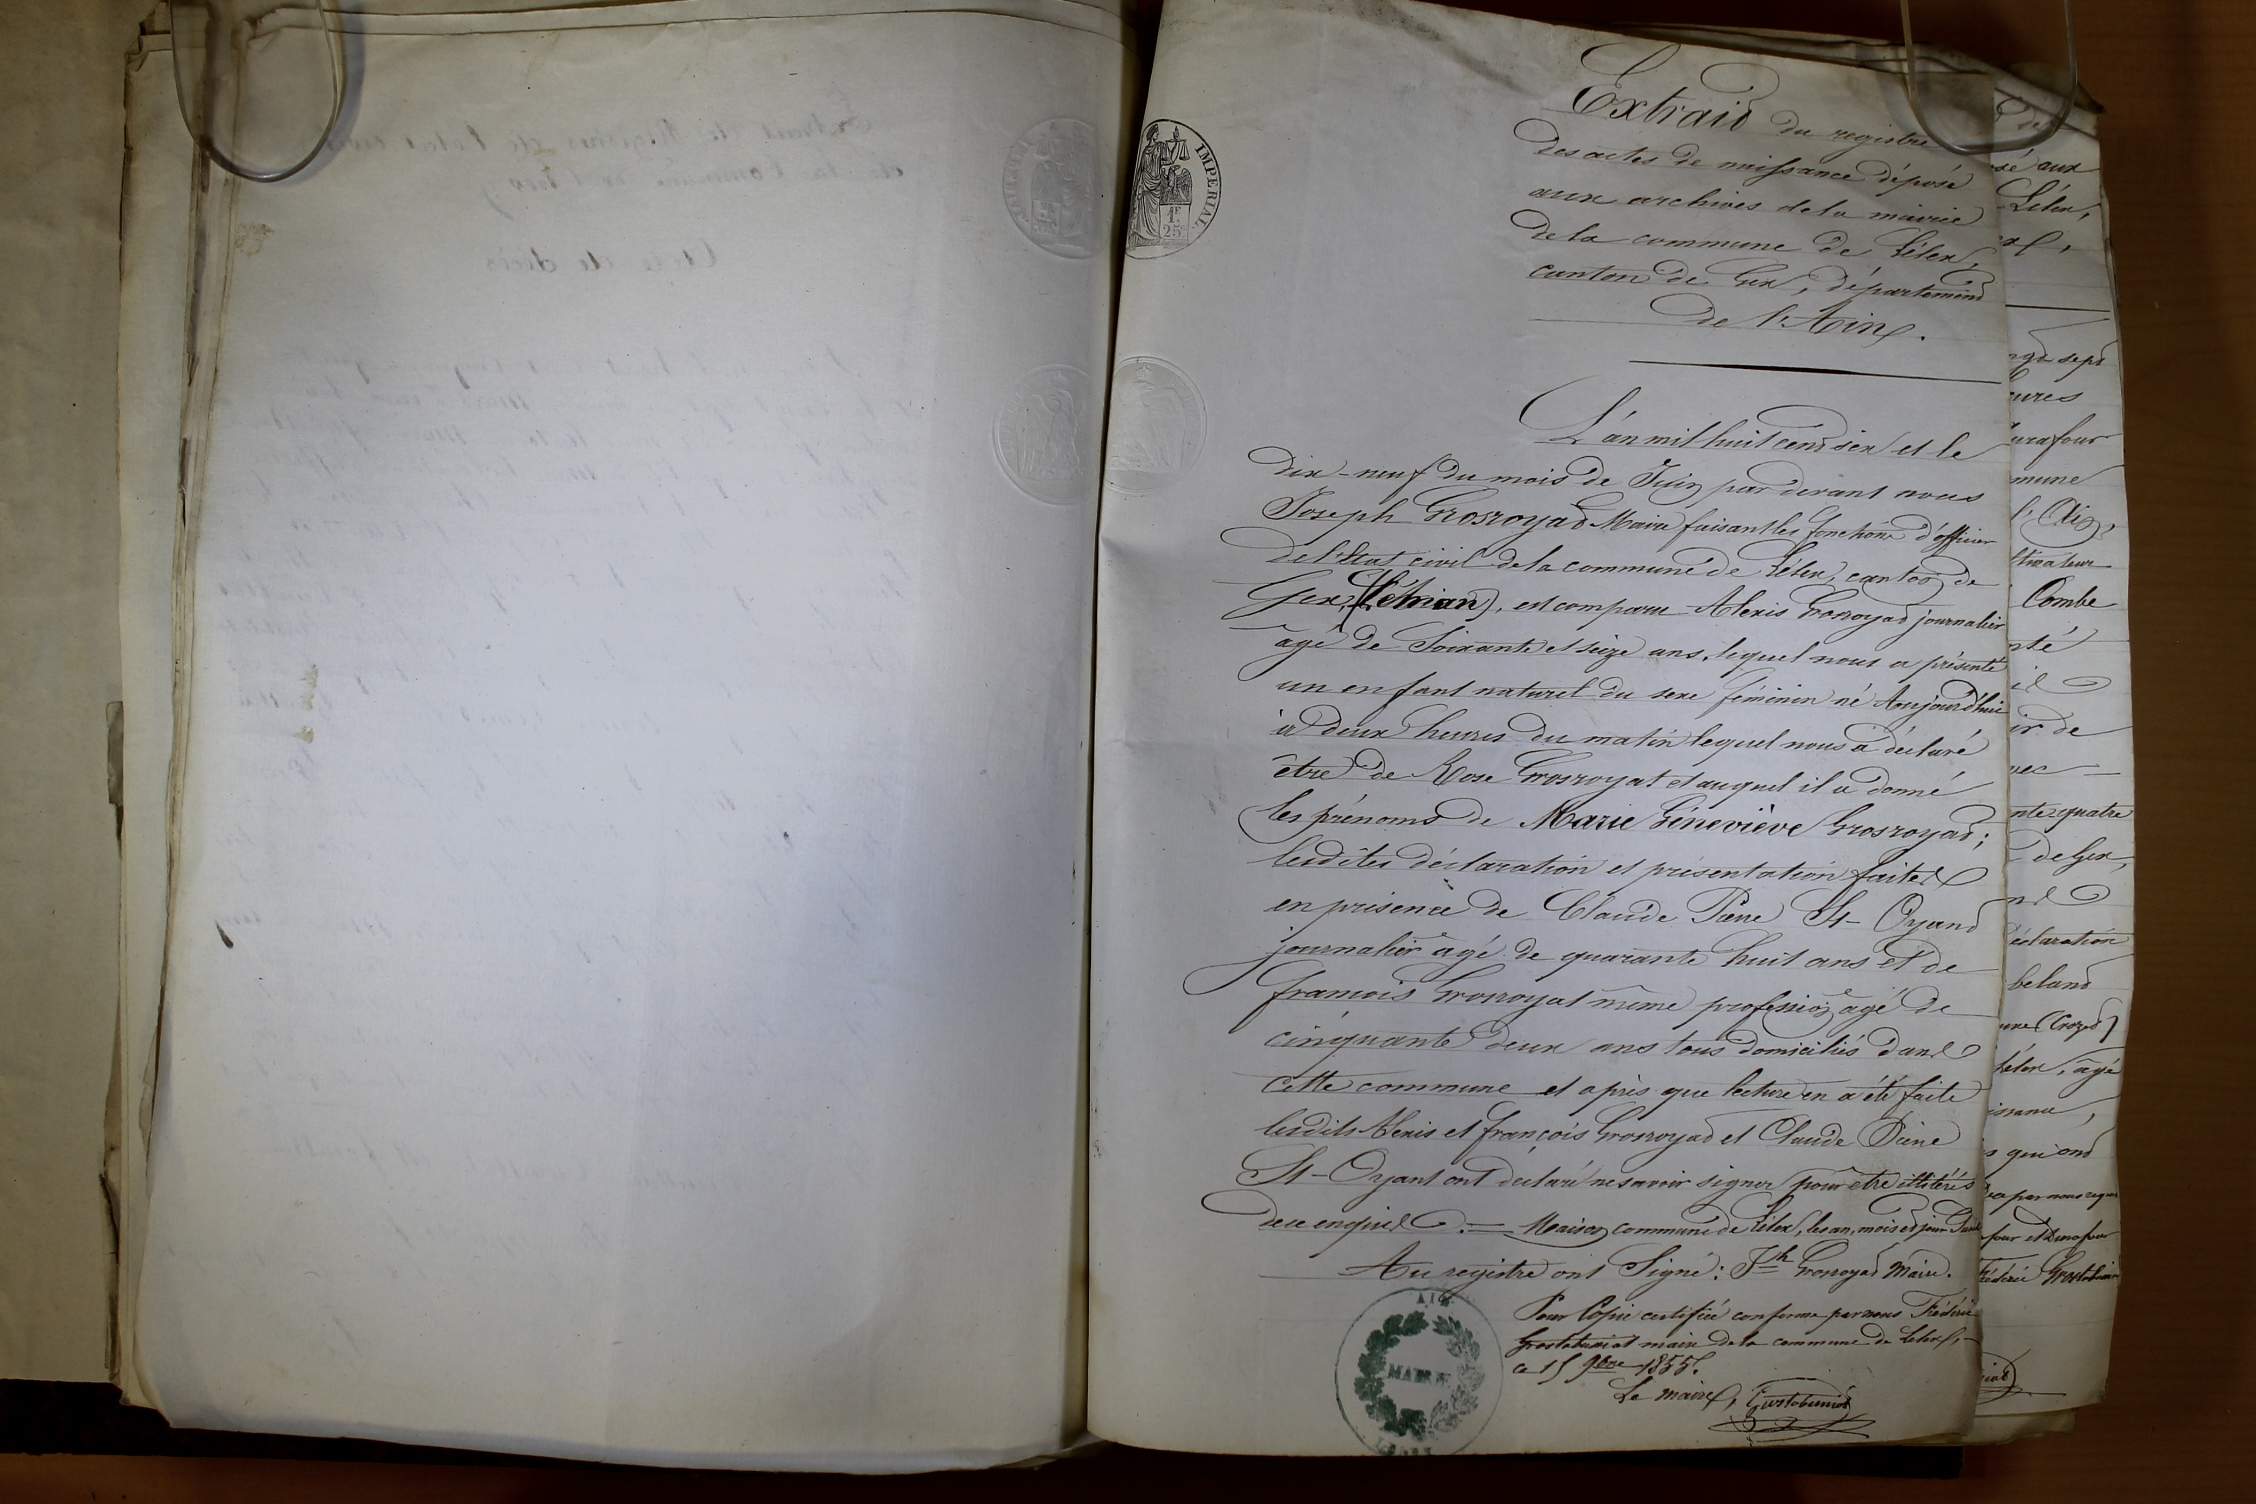 IMPERIAL
1F
25c
Extrait du registre
des actes de naissance déposé
aux archives de la mairie
de la commune de Lélex,
canton de Gex, département
de l'Ain.
L'an mil huit cent six et le
dix-neuf du mois de Juin par devant nous
Joseph Grosroyat Maire faisant les fonctions d'officier
de l'Etat civil de la commune de Lélex, canton de
Gex (Léman), est comparu Alexis Grosroyat journalier
âgé de Soixante et seize ans, lequel nous a présenté
un enfant naturel du sexe féminin né Aujourd'hui
à deux heures du matin lequel nous a déclaré
être de Rose Grosroyat et auquel il a donné
les prénoms de Marie Géneviève Grosroyat;
lesdites déclaration et présentation faites
en présence de Claude St-Oyand
journalier âgé de quarante huit ans et de
françois Grosroyat même profession âgé de
cinquante deux ans tous domiciliés dans
cette commune et après que lecture en a été faite
lesdits Alexis et françois Grosroyat et Claude
St-Oyant ont déclaré ne savoir signer pour être illitérés
de ce enquis. Maison commune de Lélex, les an, mois et jour
Au registre ont Signé: Jh Grosroyat Maire.
Pour Copie certifiée conforme par nous Frédéric
Grostabussiat maire de la commune de Lélex,
ce 15 9bre 1855.
Le maire, Grostabussiat
AIN
MAIRIE
LELEX
sé aux
Lélex,
ngt sept
eures
urafour
mune
l'Ain,
ltivateur
Combe
nté
ir de
vec
nte quatre
de Gex,
éclaration
beland
une (Crozet)
Lélex, âgé
issance,
s qui ont
four et Durafour
Frédéric Grostabussiat